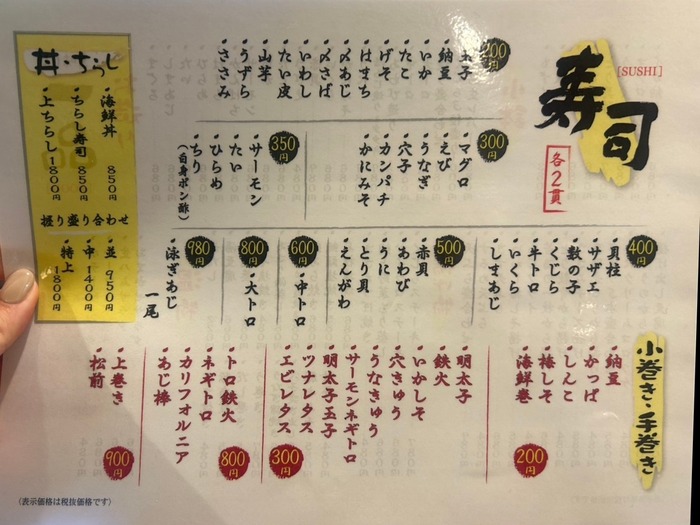 寿司
[SUSHI]
各2貫
200円
玉子
納豆
いか
たこ
げそ
はまち
〆あじ
〆さば
いわし
たい皮
山芋
うずら
ささみ
300円
マグロ
えび
うなぎ
穴子
カンパチ
かにみそ
350円
サーモン
たい
ひらめ
ちり
(白身ポン酢)
400円
貝柱
サザエ
数の子
くじら
半トロ
いくら
しまあじ
500円
赤貝
あわび
うに
とり貝
えんがわ
600円
中トロ
800円
大トロ
980円
泳ぎあじ
一尾
小巻き・手巻き
納豆
かっぱ
しんこ
梅しそ
海鮮巻
200円
明太子
鉄火
いかしそ
穴きゅう
うなきゅう
サーモンネギトロ
明太子玉子
ツナレタス
エビレタス
300円
トロ鉄火
ネギトロ
カリフォルニア
あじ棒
800円
上巻き
松前
900円
丼・ちらし
海鮮丼 850円
ちらし寿司 850円
上ちらし 1800円
握り盛り合わせ
並 950円
中 1400円
特上 1800円
(表示価格は税抜価格です)